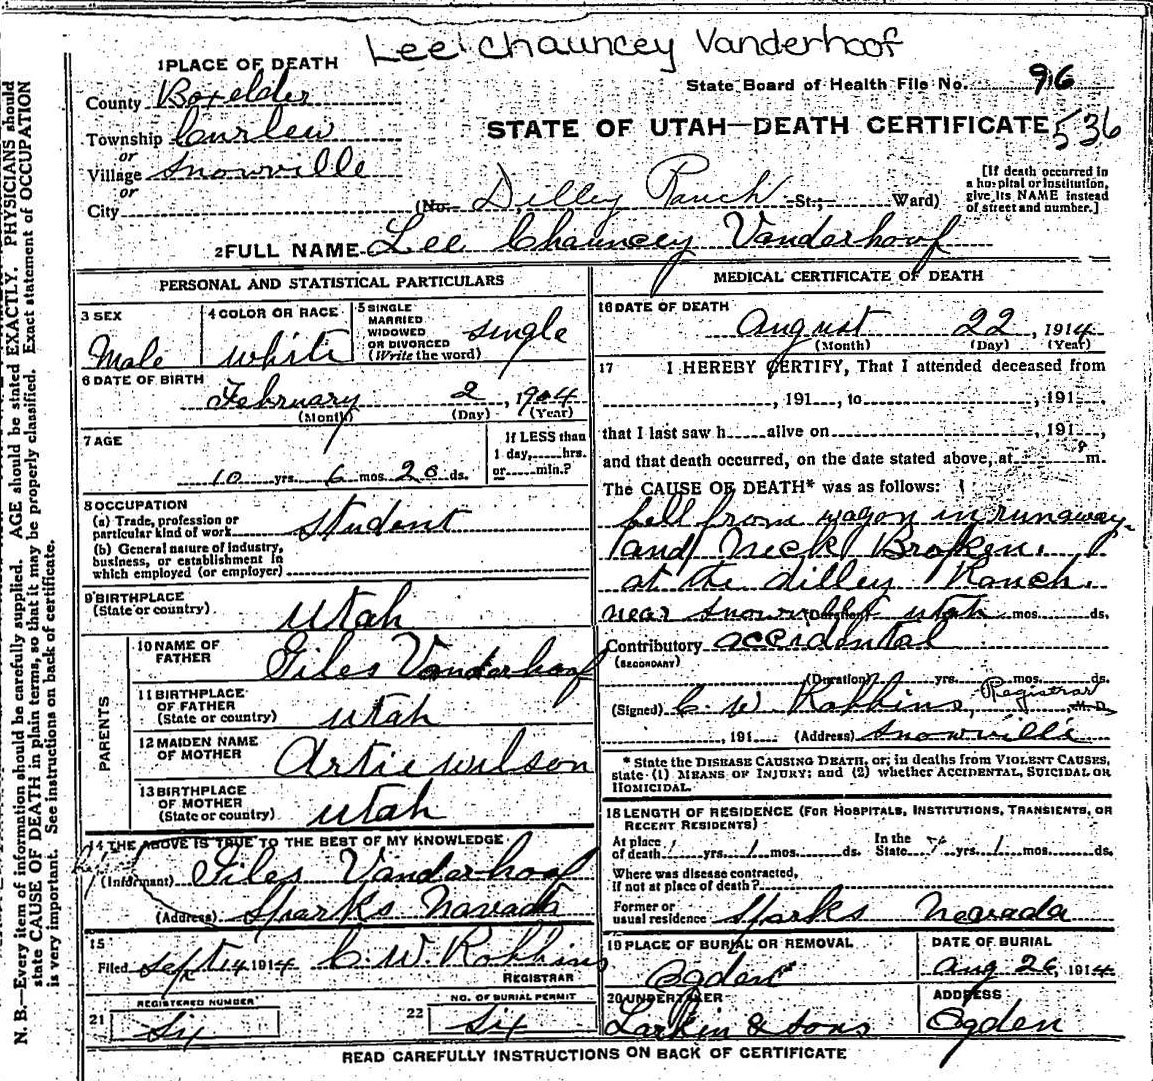 Lee Chauncey Vanderhoof
1 PLACE OF DEATH
State Board of Health File No. 96
County Boxelder
STATE OF UTAH—DEATH CERTIFICATE 536
Township Curlew
or
Village Snowville
or
City (No. Dilley Ranch St.; Ward)
[If death occurred in
a hospital or institution,
give its NAME instead
of street and number.]
2 FULL NAME Lee Chauncey Vanderhoof
PERSONAL AND STATISTICAL PARTICULARS
3 SEX
Male
4 COLOR OR RACE
white
5 SINGLE
MARRIED
WIDOWED
OR DIVORCED
(Write the word)
single
6 DATE OF BIRTH
February 2, 1904
(Month) (Day) (Year)
7 AGE
10 yrs. 6 mos. 20 ds.
If LESS than
1 day, hrs.
or min.?
8 OCCUPATION
(a) Trade, profession or
particular kind of work student
(b) General nature of industry,
business, or establishment in
which employed (or employer)
9 BIRTHPLACE
(State or country) Utah
PARENTS
10 NAME OF
FATHER Giles Vanderhoof
11 BIRTHPLACE
OF FATHER
(State or country) utah
12 MAIDEN NAME
OF MOTHER Artie wilson
13 BIRTHPLACE
OF MOTHER
(State or country) utah
14 THE ABOVE IS TRUE TO THE BEST OF MY KNOWLEDGE
(Informant) Giles Vanderhoof
(Address) Sparks Navada
15
Filed Sept 14 1914 C. W. Robbins
REGISTRAR
REGISTERED NUMBER
21 Six
NO. OF BURIAL PERMIT
22 Six
MEDICAL CERTIFICATE OF DEATH
16 DATE OF DEATH
August 22, 1914
(Month) (Day) (Year)
17 I HEREBY CERTIFY, That I attended deceased from
, 191 , to , 191
that I last saw h alive on , 191 ,
and that death occurred, on the date stated above, at P m.
The CAUSE OF DEATH* was as follows:
fell from wagon in runaway
and Neck Broken.
at the dilley Ranch.
near Snowville utah (Duration) mos. ds.
Contributory accidental
(SECONDARY)
(Duration) yrs. mos. ds.
(Signed) C. W. Robbins, Registrar M.D.
, 191 (Address) Snowville
* State the DISEASE CAUSING DEATH, or, in deaths from VIOLENT CAUSES,
state (1) MEANS OF INJURY; and (2) whether ACCIDENTAL, SUICIDAL OR
HOMICIDAL.
18 LENGTH OF RESIDENCE (FOR HOSPITALS, INSTITUTIONS, TRANSIENTS, OR
RECENT RESIDENTS)
At place
of death yrs. 1 mos. ds.
In the
State yrs. 1 mos. ds.
Where was disease contracted,
if not at place of death?
Former or
usual residence Sparks Nevada
19 PLACE OF BURIAL OR REMOVAL
Ogden
DATE OF BURIAL
Aug 26, 1914
20 UNDERTAKER
Larkin & Sons
ADDRESS
Ogden
READ CAREFULLY INSTRUCTIONS ON BACK OF CERTIFICATE
N. B.—Every item of information should be carefully supplied. AGE should be stated EXACTLY. PHYSICIANS should
state CAUSE OF DEATH in plain terms, so that it may be properly classified. Exact statement of OCCUPATION
is very important. See instructions on back of certificate.